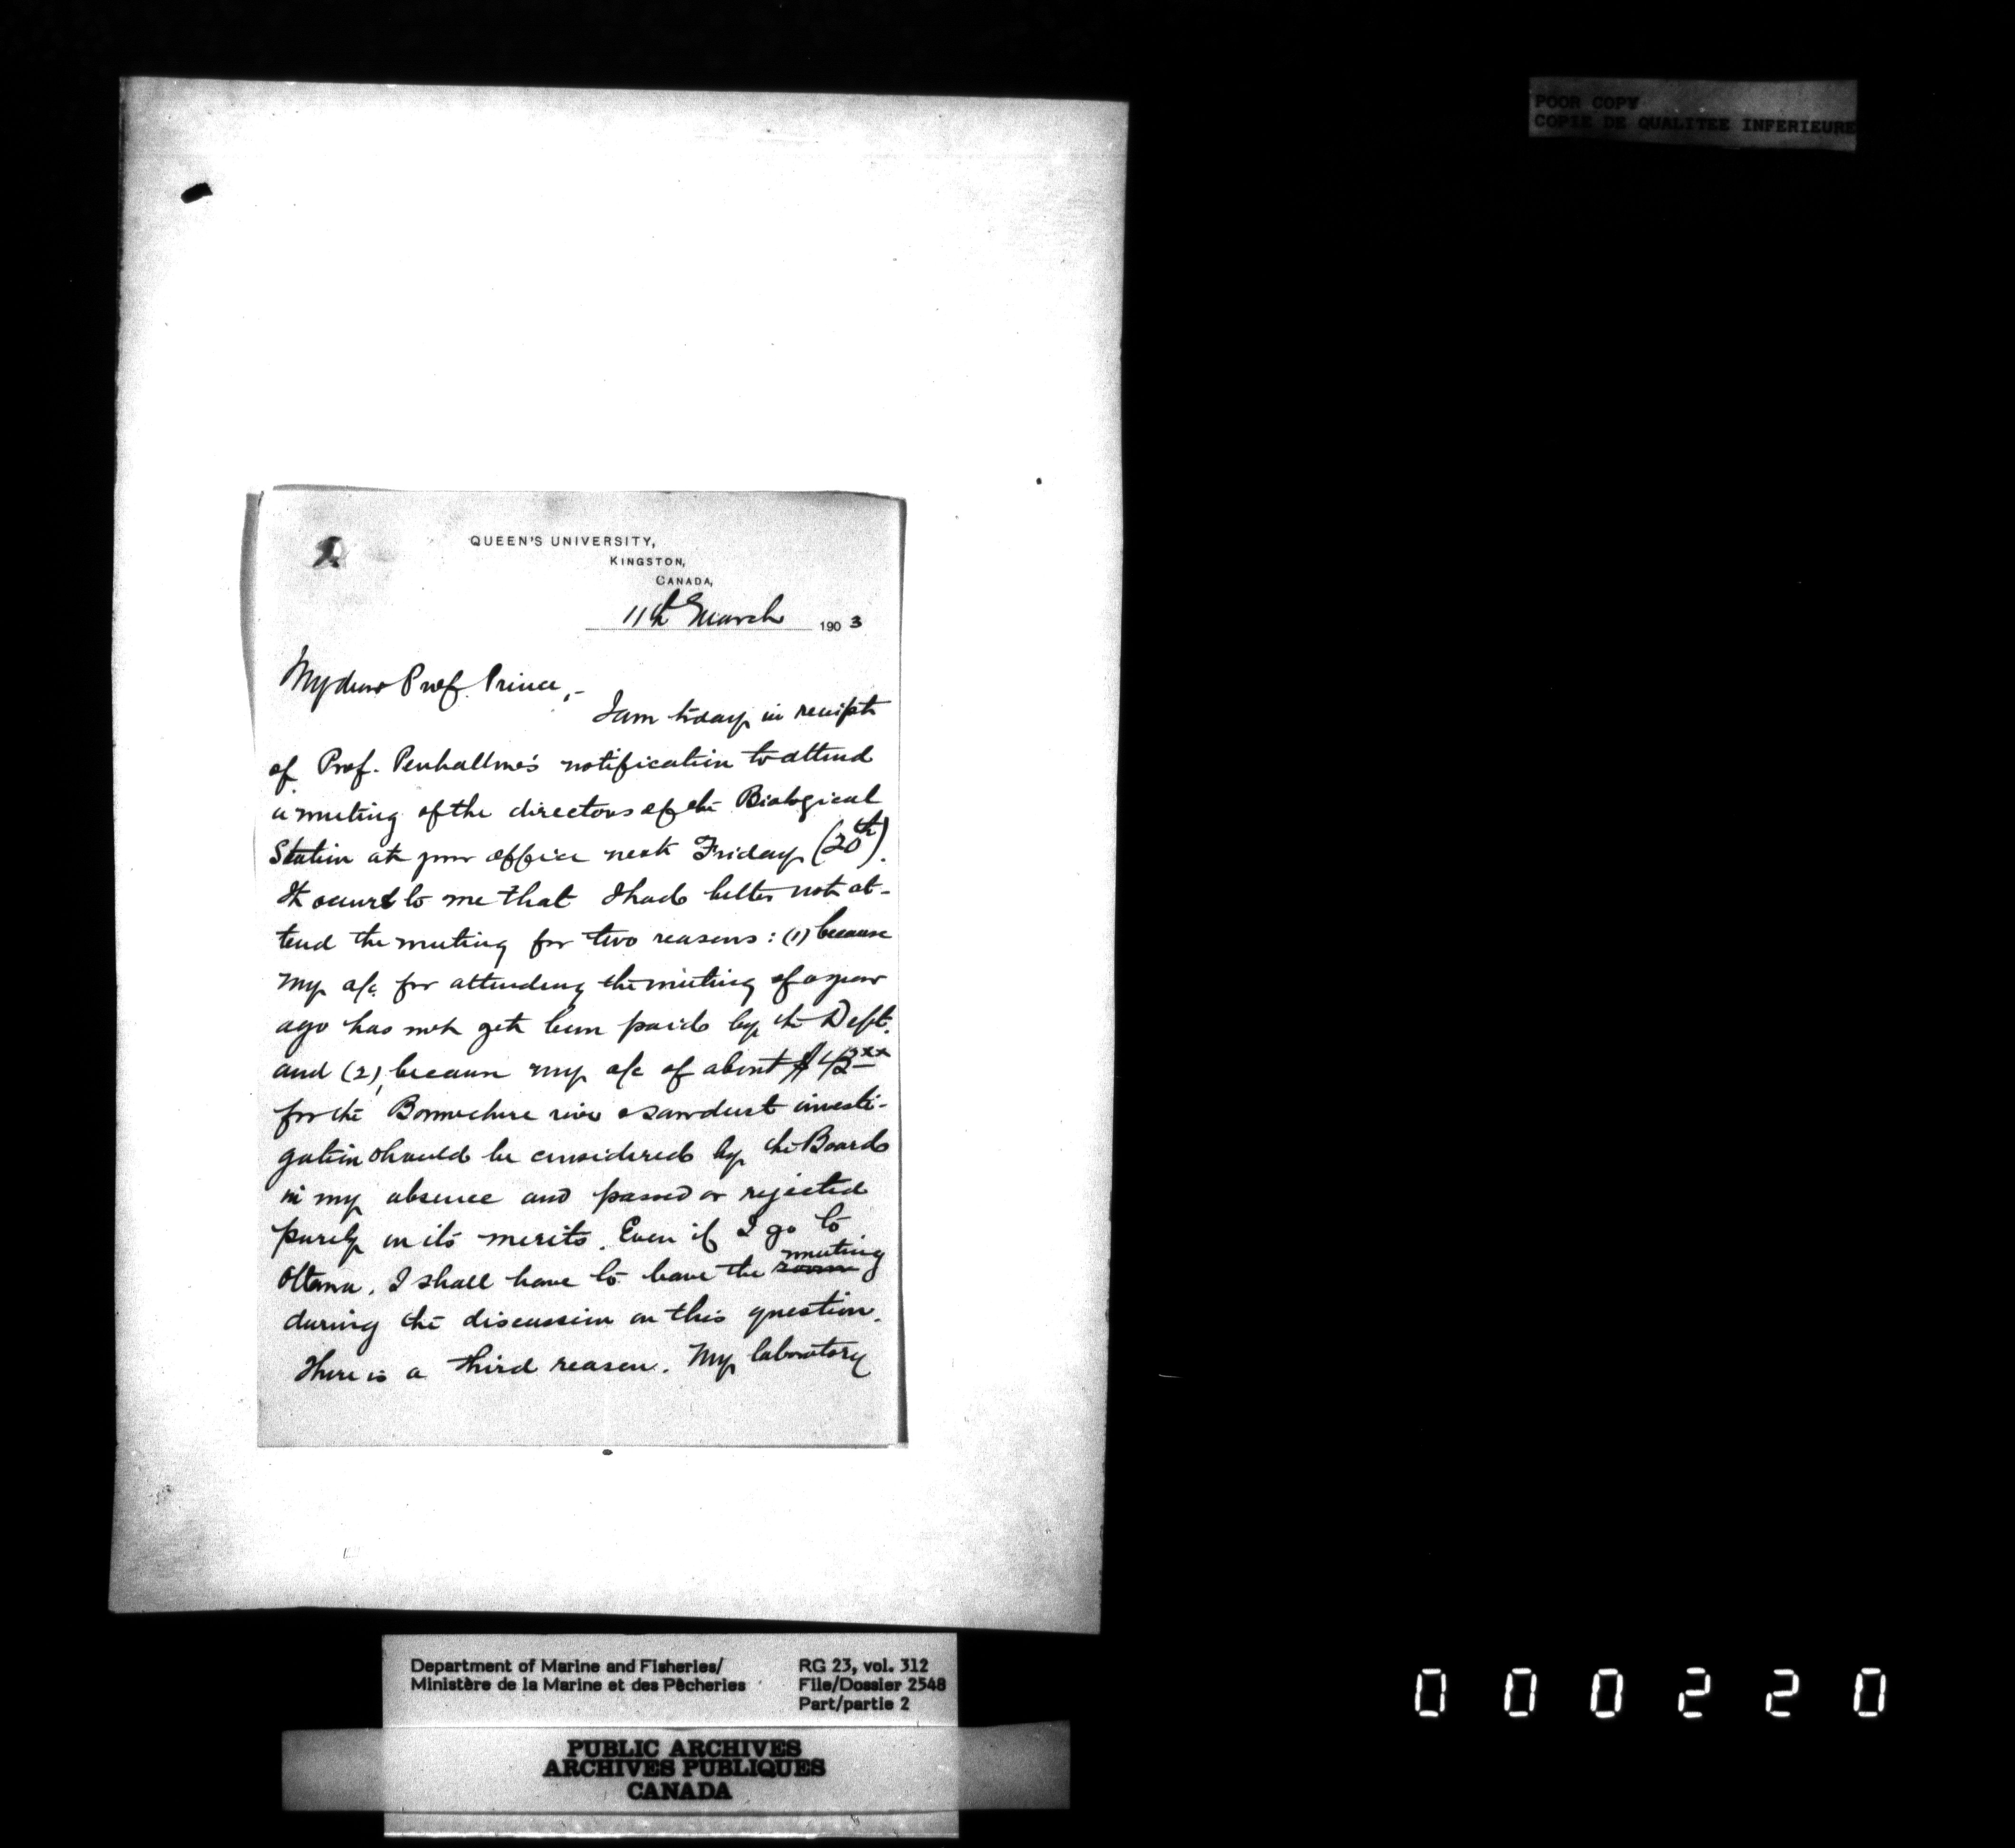 POOR COPY
COPIE DE QUALITEE INFERIEURE
QUEEN'S UNIVERSITY,
KINGSTON,
CANADA,
11th March 1903
My dear Prof. Prince,-
I am today in receipt
of Prof. Penhallow's notification to attend
a meeting of the directors of the Biological
Station at your office next Friday (20th).
It occurs to me that I had better not at-
tend the meeting for two reasons: (1) because
my a/c. for attending the meeting of a year
ago has not yet been paid by the Dept.
and (2), because my a/c of about $42xx
for the Bonnechere river sawdust investi-
gation should be considered by the Board
in my absence and passed or rejected
purely on its merits. Even if I go to
Ottawa, I shall have to leave the room meeting
during the discussion on this question.
There is a third reason. My laboratory
Department of Marine and Fisheries/
Ministère de la Marine et des Pêcheries
RG 23, vol. 312
File/Dossier 2548
Part/partie 2
PUBLIC ARCHIVES
ARCHIVES PUBLIQUES
CANADA
000220